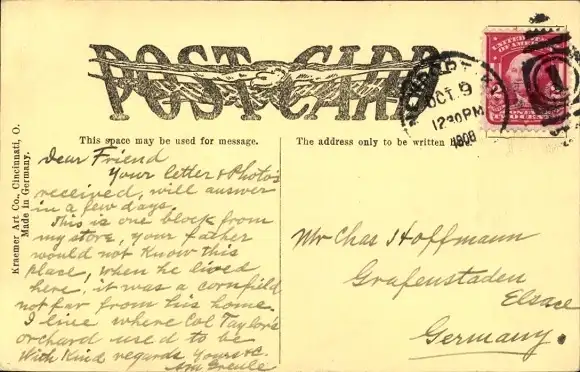 POST CARD
This space may be used for message.
The address only to be written
OCT. 9
12 30 PM
1908
UNITED STATES
OF AMERICA
TWO CENTS
Kraemer Art Co., Cincinnati, O.
Made in Germany.
Dear Friend
Your letter & Photo's
received, will answer
in a few days.
This is one block from
my store, your father
would not know this
place, when he lived
here, it was a cornfield
not far from his home.
I live where Col Taylor's
orchard used to be
With Kind regards Yours &c.
Mr Chas Hoffmann
Grafenstaden
Elsace
Germany.